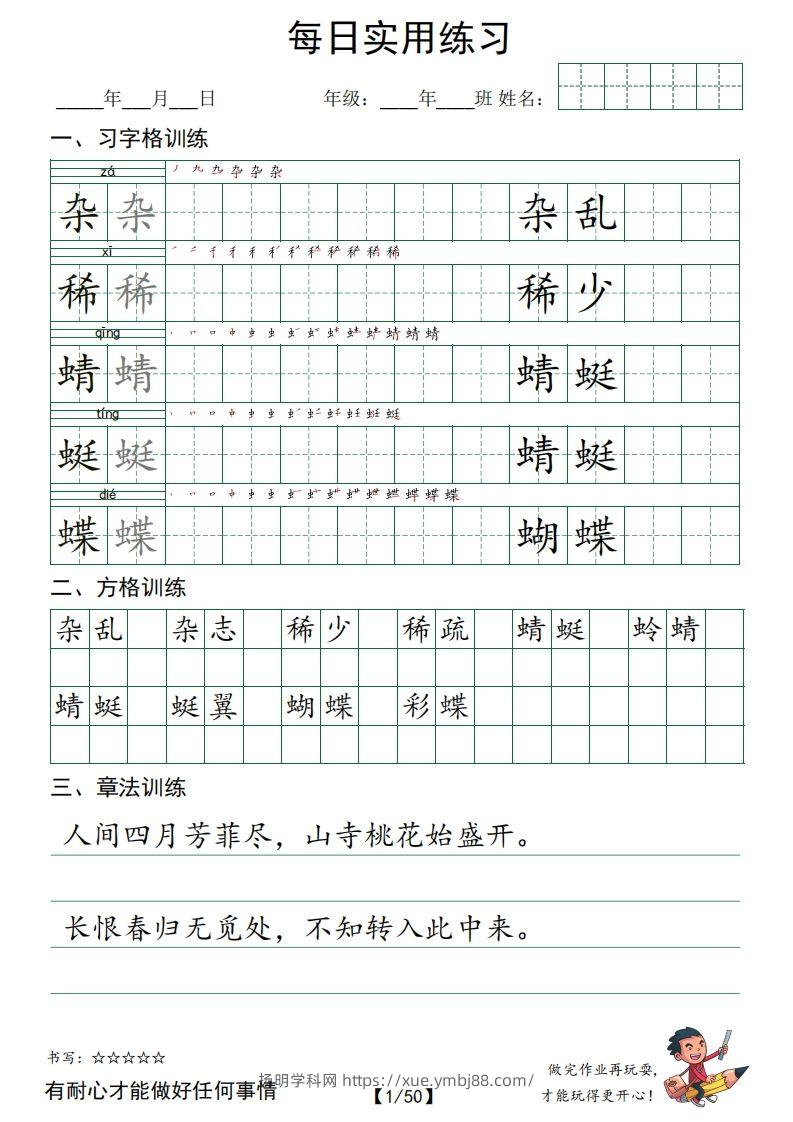 每日实用练习
_____年___月___日 年级：____年____班 姓名：
一、习字格训练
zá
杂 杂 杂 乱
xī
稀 稀 稀 少
qīng
蜻 蜻 蜻 蜓
tíng
蜓 蜓 蜻 蜓
dié
蝶 蝶 蝴 蝶
二、方格训练
杂 乱 杂 志 稀 少 稀 疏 蜻 蜓 蛉 蜻
蜻 蜓 蜓 翼 蝴 蝶 彩 蝶
三、章法训练
人间四月芳菲尽，山寺桃花始盛开。
长恨春归无觅处，不知转入此中来。
书写：☆☆☆☆☆
有耐心才能做好任何事情
扬明学科网 https://xue.ymbj88.com/
【1/50】
做完作业再玩耍，
才能玩得更开心！